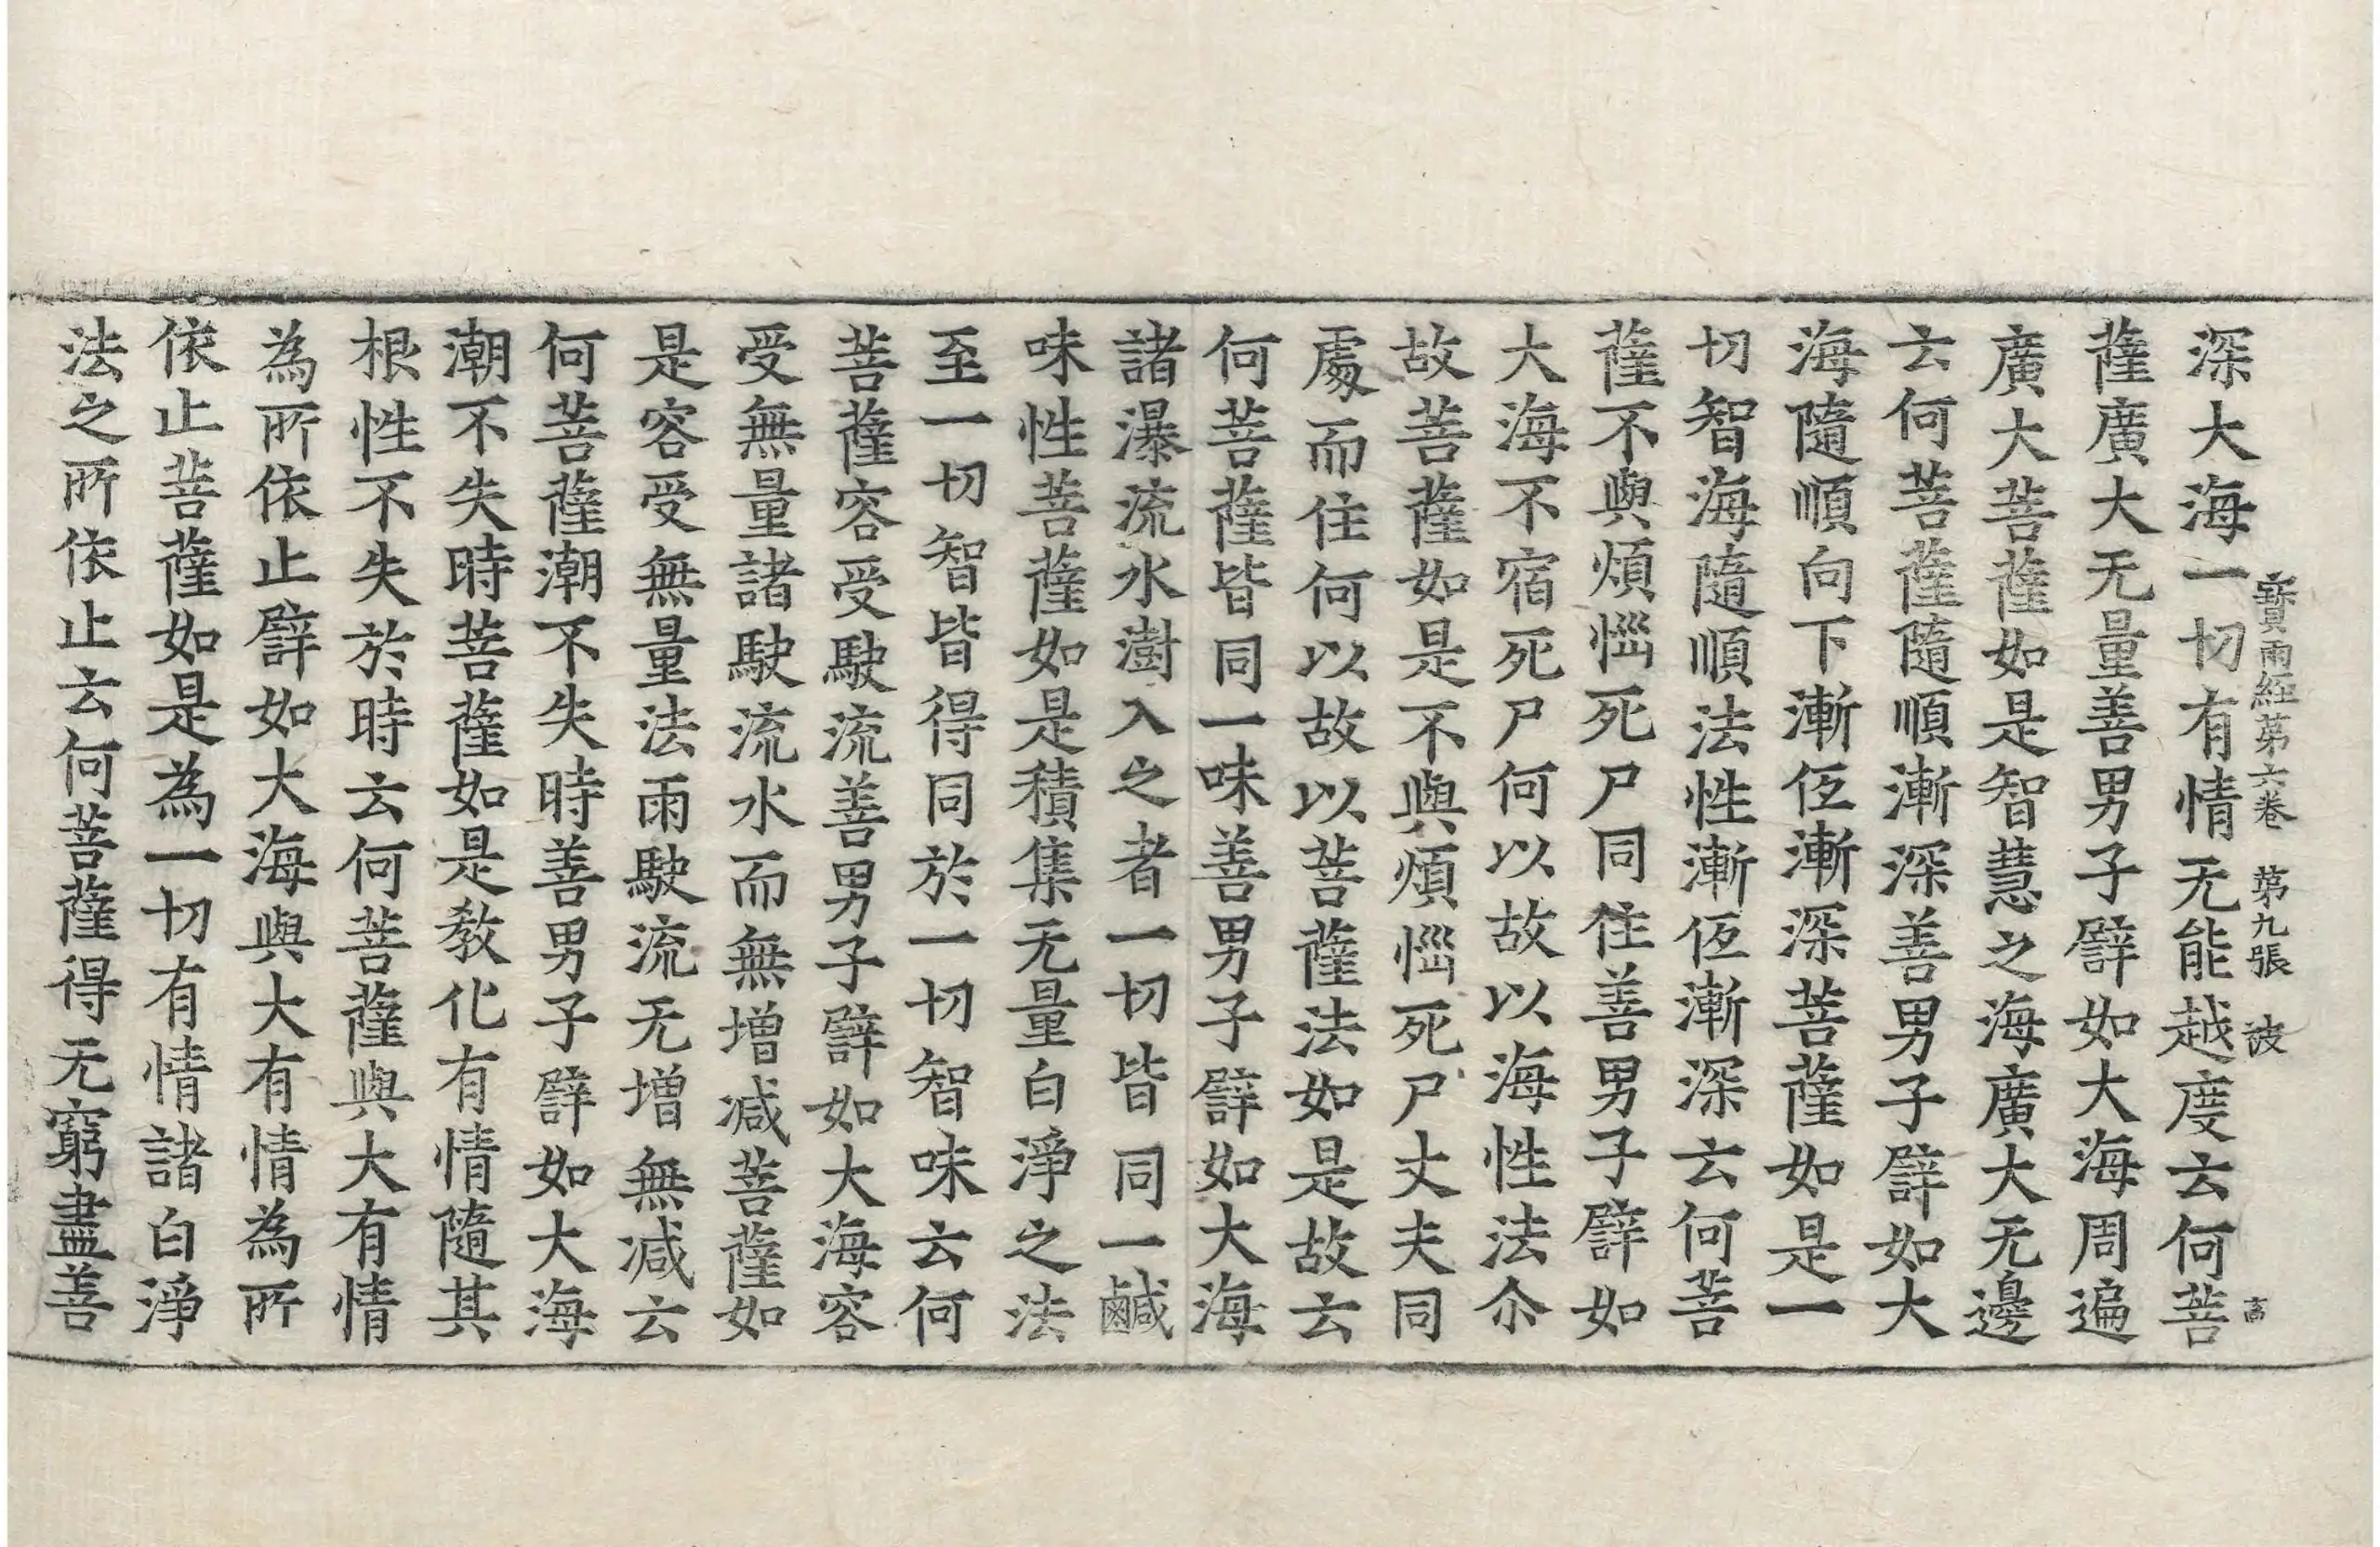 寶雨經第六卷 第九張 彼
深大海一切有情无能越度云何菩
薩廣大无量善男子譬如大海周遍
廣大菩薩如是智慧之海廣大无邊
云何菩薩隨順漸深善男子譬如大
海隨順向下漸仾漸深菩薩如是一
切智海隨順法性漸仾漸深云何菩
薩不與煩惱死尸同住善男子譬如
大海不宿死尸何以故以海性法尒
故菩薩如是不與煩惱死尸丈夫同
處而住何以故以菩薩法如是故云
何菩薩皆同一味善男子譬如大海
諸瀑流水澍入之者一切皆同一鹹
味性菩薩如是積集无量白淨之法
至一切智皆得同於一切智味云何
菩薩容受駛流善男子譬如大海容
受無量諸駛流水而無增减菩薩如
是容受無量法雨駛流无增無减云
何菩薩潮不失時善男子譬如大海
潮不失時菩薩如是教化有情隨其
根性不失於時云何菩薩與大有情
為所依止譬如大海與大有情為所
依止菩薩如是為一切有情諸白淨
法之所依止云何菩薩得无窮盡善